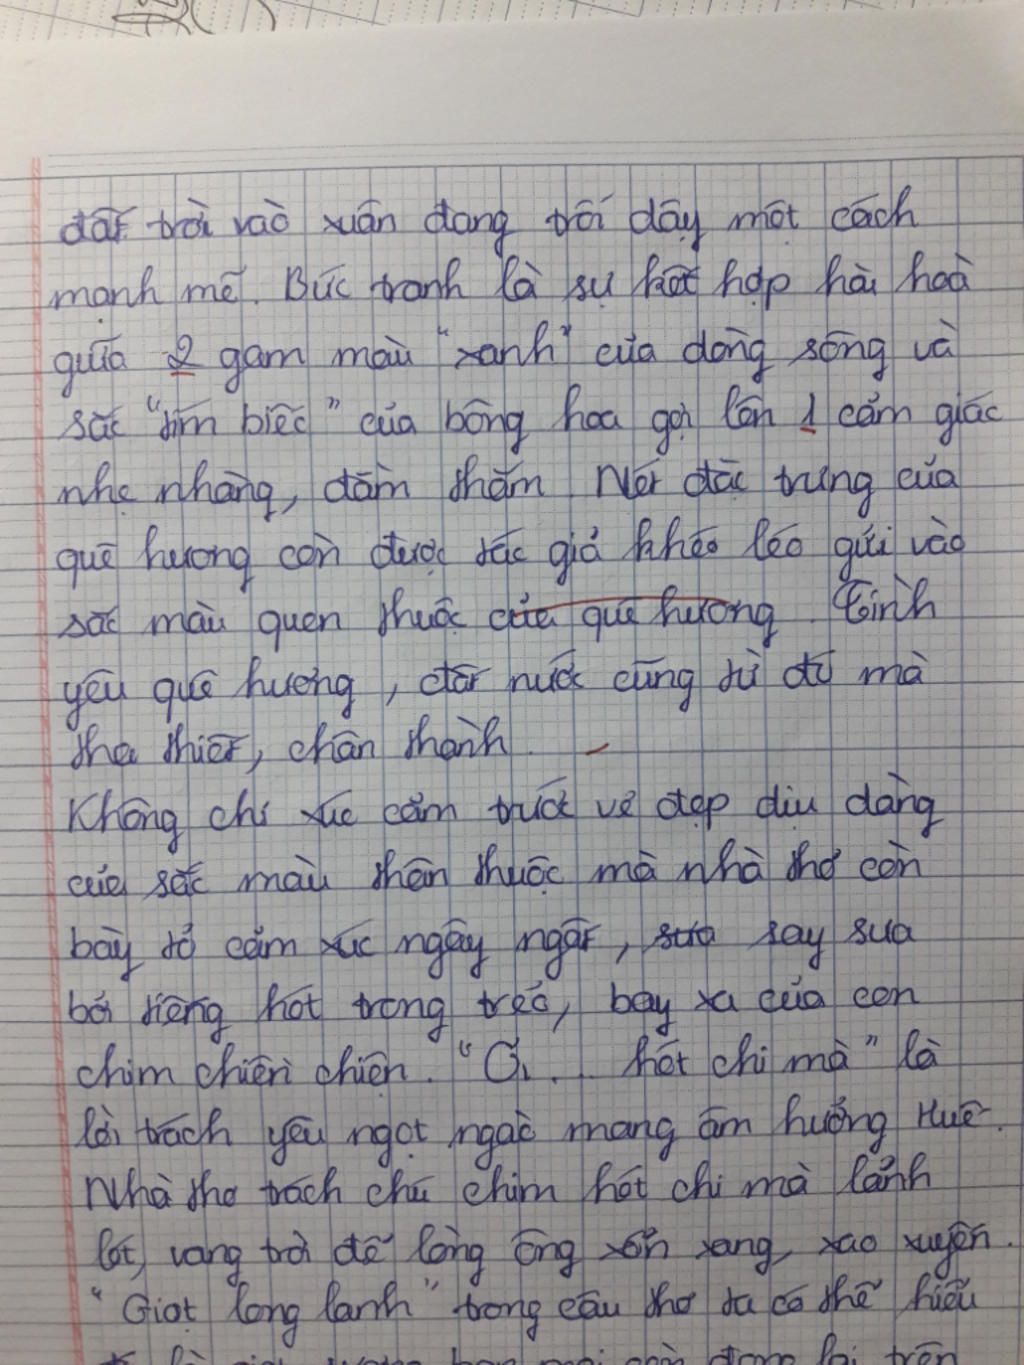 đất trời vào xuân đang trỗi dậy một cách
mạnh mẽ. Bức tranh là sự kết hợp hài hoà
giữa 2 gam màu "xanh" của dòng sông và
sắc "tím biếc" của bông hoa gợi lên 1 cảm giác
nhẹ nhàng, đằm thắm. Nét đặc trưng của
quê hương còn được tác giả khéo léo gửi vào
sắc màu quen thuộc của quê hương. Tình
yêu quê hương, đất nước cũng từ đó mà
tha thiết, chân thành.
Không chỉ xúc cảm trước vẻ đẹp dịu dàng
của sắc màu thân thuộc mà nhà thơ còn
bày tỏ cảm xúc ngây ngất, sưa say sưa
bởi tiếng hót trong trẻo, bay xa của con
chim chiền chiện. "Ơi... hót chi mà" là
lời trách yêu ngọt ngào mang âm hưởng Huế.
Nhà thơ trách chú chim hót chi mà lảnh
lót, vang trời để lòng ông xốn xang, xao xuyến.
"Giọt long lanh" trong câu thơ ta có thể hiểu